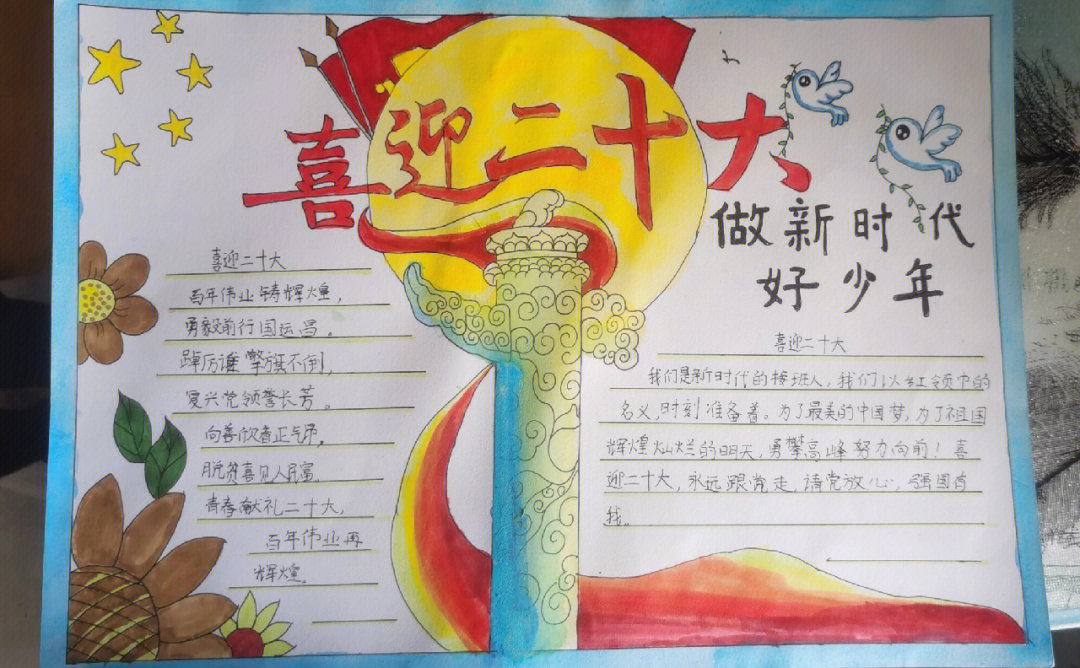 喜迎二十大
做新时代
好少年
喜迎二十大
百年伟业铸辉煌，
勇毅前行国运昌。
踔厉 擎旗不倒，
复兴党领誉长芳。
向善欣看正气
脱贫喜见人民富
青春献礼二十大，
百年伟业再
辉煌。
喜迎二十大
我们是新时代的接班人，我们以红领巾的
名义，时刻准备着。为了最美的中国梦，为了祖国
辉煌灿烂的明天，勇攀高峰努力向前！喜
迎二十大，永远跟党走，请党放心，强国有
我。